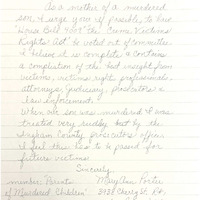 As a mother of a murdered
son, I urge you if possible, to have
"House Bill 4009" the Crime Victims
Rights Act be voted out of committee.
I believe it is complete & contains
a completion of the best insight from
victims, victims rights professionals,
attorneys, judiciary, prosecutors &
law enforcement.
When our son was murdered I was
treated very rudely by the
County prosecutors office.
I feel this has to be passed for
future victims
Sincerely,
member: Parents
of Murdered Children
Mary Ann Porter
Cherry St. Rd.